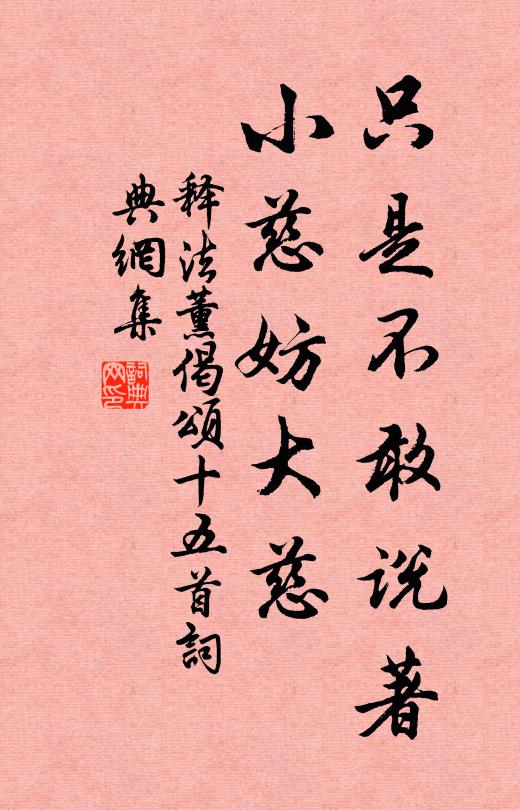 只是不敢说著
小慈妨大慈
释法薰偈頌十五首詞
典網集
詞典
网印